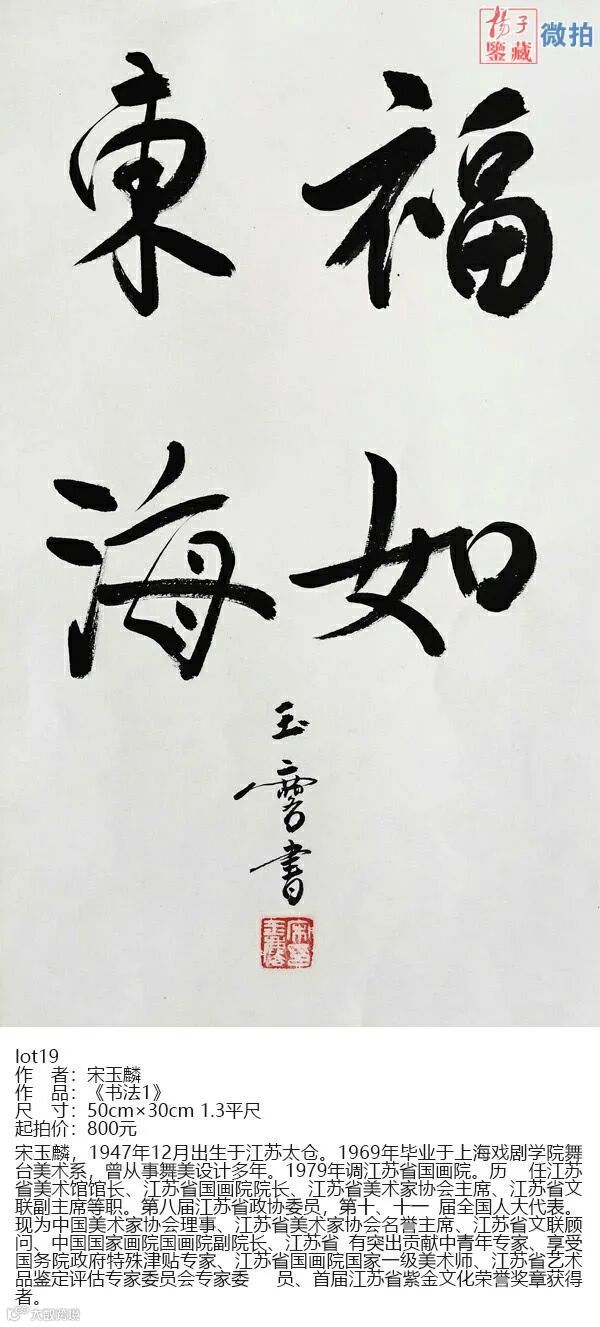 揚子
鑒藏
微拍
福如
東海
玉
書
lot19
作 者：宋玉麟
作 品：《书法1》
尺 寸：50cm×30cm 1.3平尺
起拍价：800元
宋玉麟，1947年12月出生于江苏太仓。1969年毕业于上海戏剧学院舞
台美术系，曾从事舞美设计多年。1979年调江苏省国画院。历 任江苏
省美术馆馆长、江苏省国画院院长、江苏省美术家协会主席、江苏省文
联副主席等职。第八届江苏省政协委员，第十、十一 届全国人大代表。
现为中国美术家协会理事、江苏省美术家协会名誉主席、江苏省文联顾
问、中国国家画院国画院副院长、江苏省 有突出贡献中青年专家、享受
国务院政府特殊津贴专家、江苏省国画院国家一级美术师、江苏省艺术
品鉴定评估专家委员会专家委 员、首届江苏省紫金文化荣誉奖章获得
者。
大数跨境